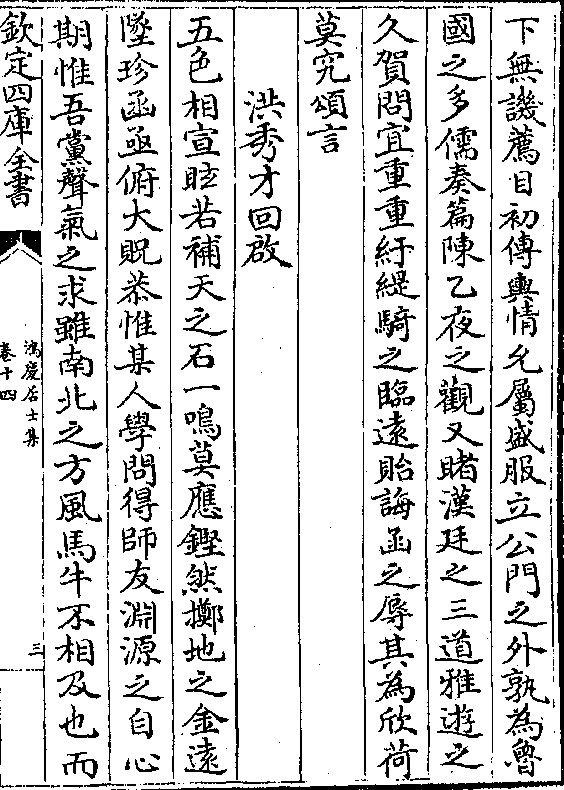 下無譏薦目初傳輿情允屬盛服立公門之外孰為魯
國之多儒奏篇陳乙夜之觀又睹漢廷之三道雅遊之
久賀問宜重重紆緹騎之臨遠貽誨函之辱其為欣荷
莫究頌言
洪秀才回啟
五色相宣眩若補天之石一鳴莫應鏗然擲地之金遠
墜珍函亟俯大貺恭惟某人學問得師友淵源之自心
期惟吾黨聲氣之求雖南北之方風馬牛不相及也而
欽定四庫全書
鴻慶居士集
卷十四
三